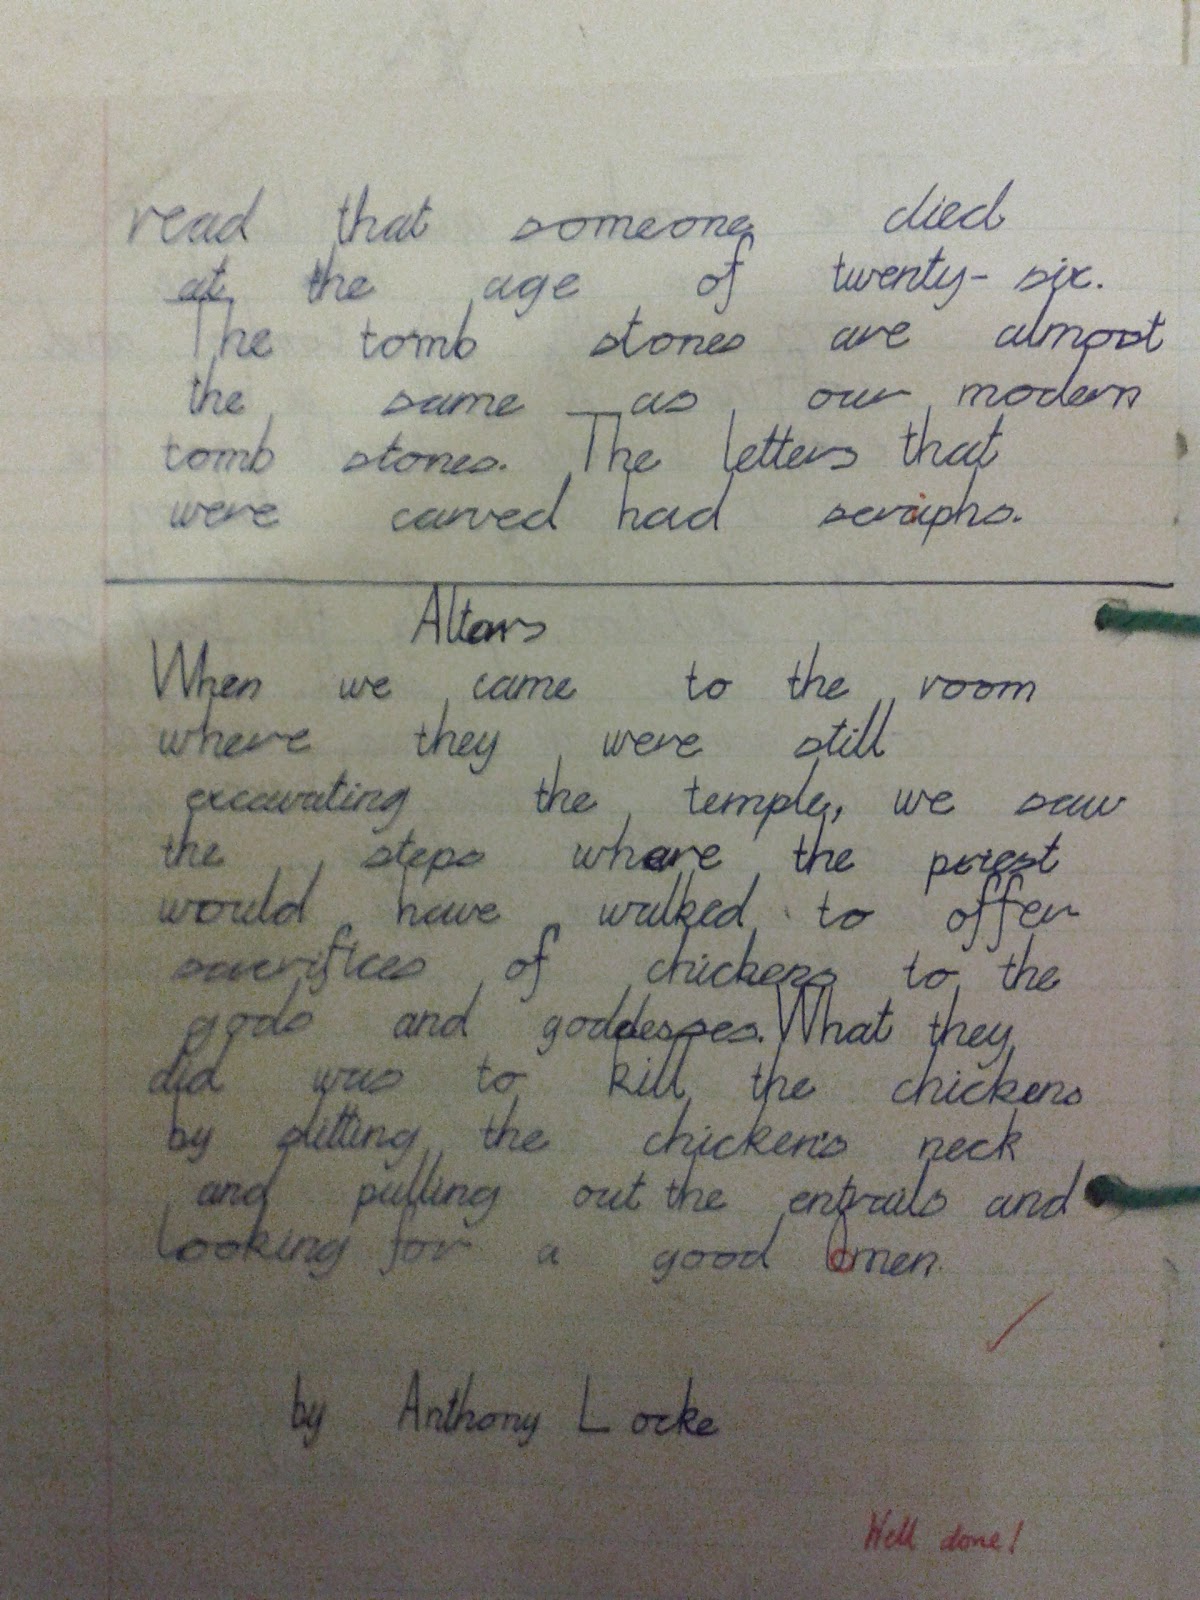 read that someone died
at the age of twenty-six.
The tomb stones are almost
the same as our modern
tomb stones. The letters that
were carved had seriphs.
Altars
When we came to the room
where they were still
excavating the temple, we saw
the steps where the priest
would have walked to offer
sacrifices of chickens to the
gods and goddesses. What they
did was to kill the chickens
by slitting the chicken's neck
and pulling out the entrails and
looking for a good omen.
by Anthony Locke
Well done!